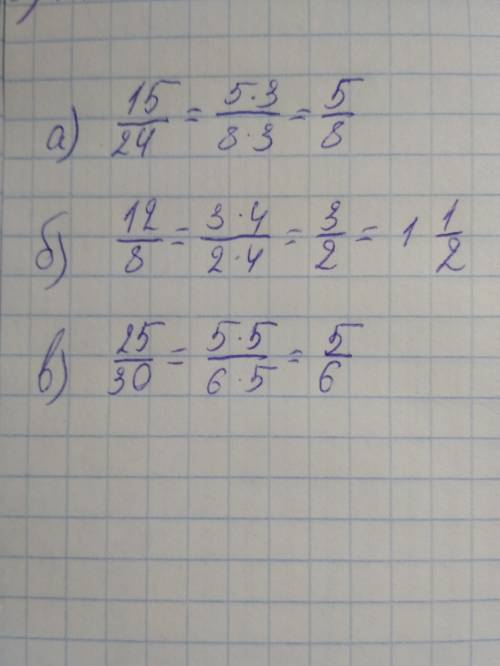 а) 15/24 = 5·3/8·3 = 5/8
б) 12/8 = 3·4/2·4 = 3/2 = 1 1/2
в) 25/30 = 5·5/6·5 = 5/6